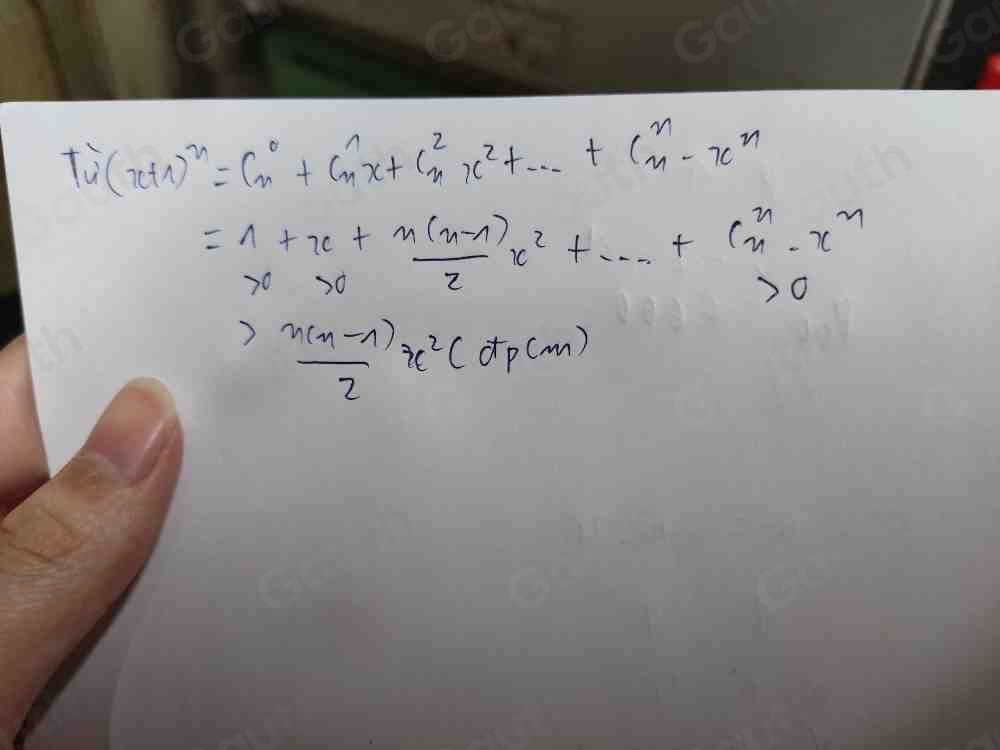 Từ (x+1)^n = C_n^0 + C_n^1 x + C_n^2 x^2 + ... + C_n^n - x^n
= 1 + x + n(n-1)/2 x^2 + ... + C_n^n - x^n
>0 >0 >0
> n(n-1)/2 x^2 (đpcm)
Gauth